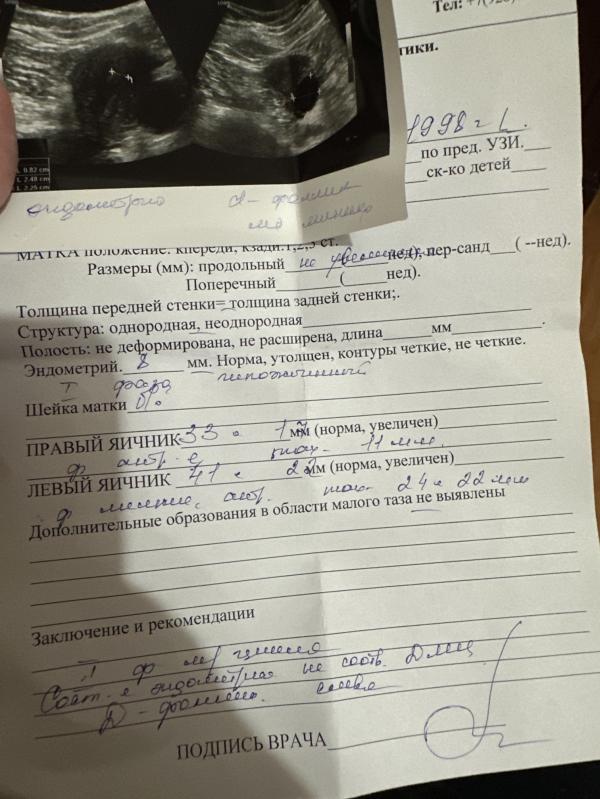 Тел: +7(928)
тики.
1998 г
по пред. УЗИ.
ск-ко детей
L 0.82 cm
L 2.48 cm
L 2.25 cm
эндометрий
МАТКА положение: кпереди, кзади.1,2,3 ст.
Размеры (мм): продольный не увеличена нед), пер-санд ( --нед).
Поперечный ( нед).
Толщина передней стенки= толщина задней стенки;.
Структура: однородная, неоднородная
Полость: не деформирована, не расширена, длина мм
Эндометрий. 8 мм. Норма, утолщен, контуры четкие, не четкие.
I фаза
Шейка матки б/о
ПРАВЫЙ ЯИЧНИК 33 × 17 мм (норма, увеличен)
ф антр. с max - 11 мм.
ЛЕВЫЙ ЯИЧНИК 41 × мм (норма, увеличен)
ф антр. max 24 × 22 мм
Дополнительные образования в области малого таза не выявлены
Заключение и рекомендации
I ф м/цикла
Сост. эндометрия не соотв. ДМЦ
Д - слева
ПОДПИСЬ ВРАЧА